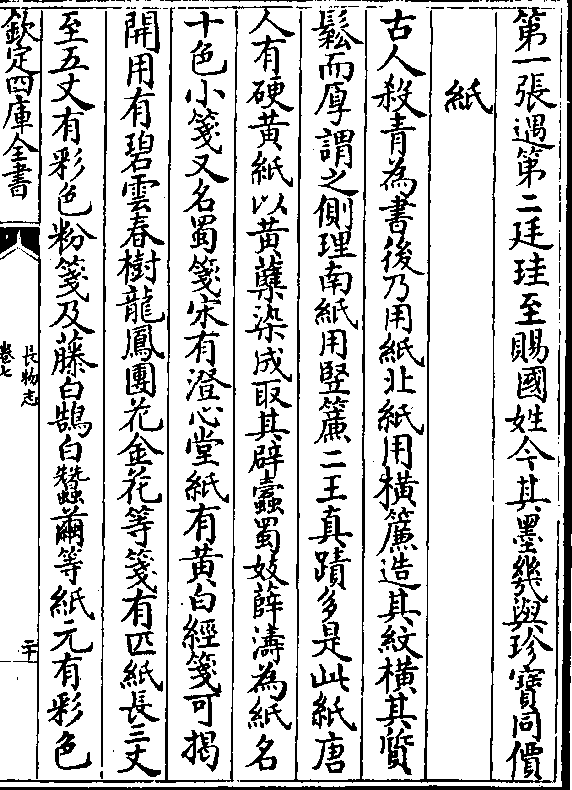 第一張遇第二廷珪至賜國姓今其墨幾與珍寶同價
紙
古人殺青為書後乃用紙北紙用橫簾造其紋橫其質
鬆而厚謂之側理南紙用竪簾二王真蹟多是此紙唐
人有硬黄紙以黄蘗染成取其辟蠹蜀妓薛濤為紙名
十色小箋又名蜀箋宋有澄心堂紙有黄白經箋可揭
開用有碧雲春樹龍鳳團花金花等箋有匹紙長三丈
至五丈有彩色粉箋及藤白鵠白蠶繭等紙元有彩色
欽定四庫全書
長物志
卷七
二十